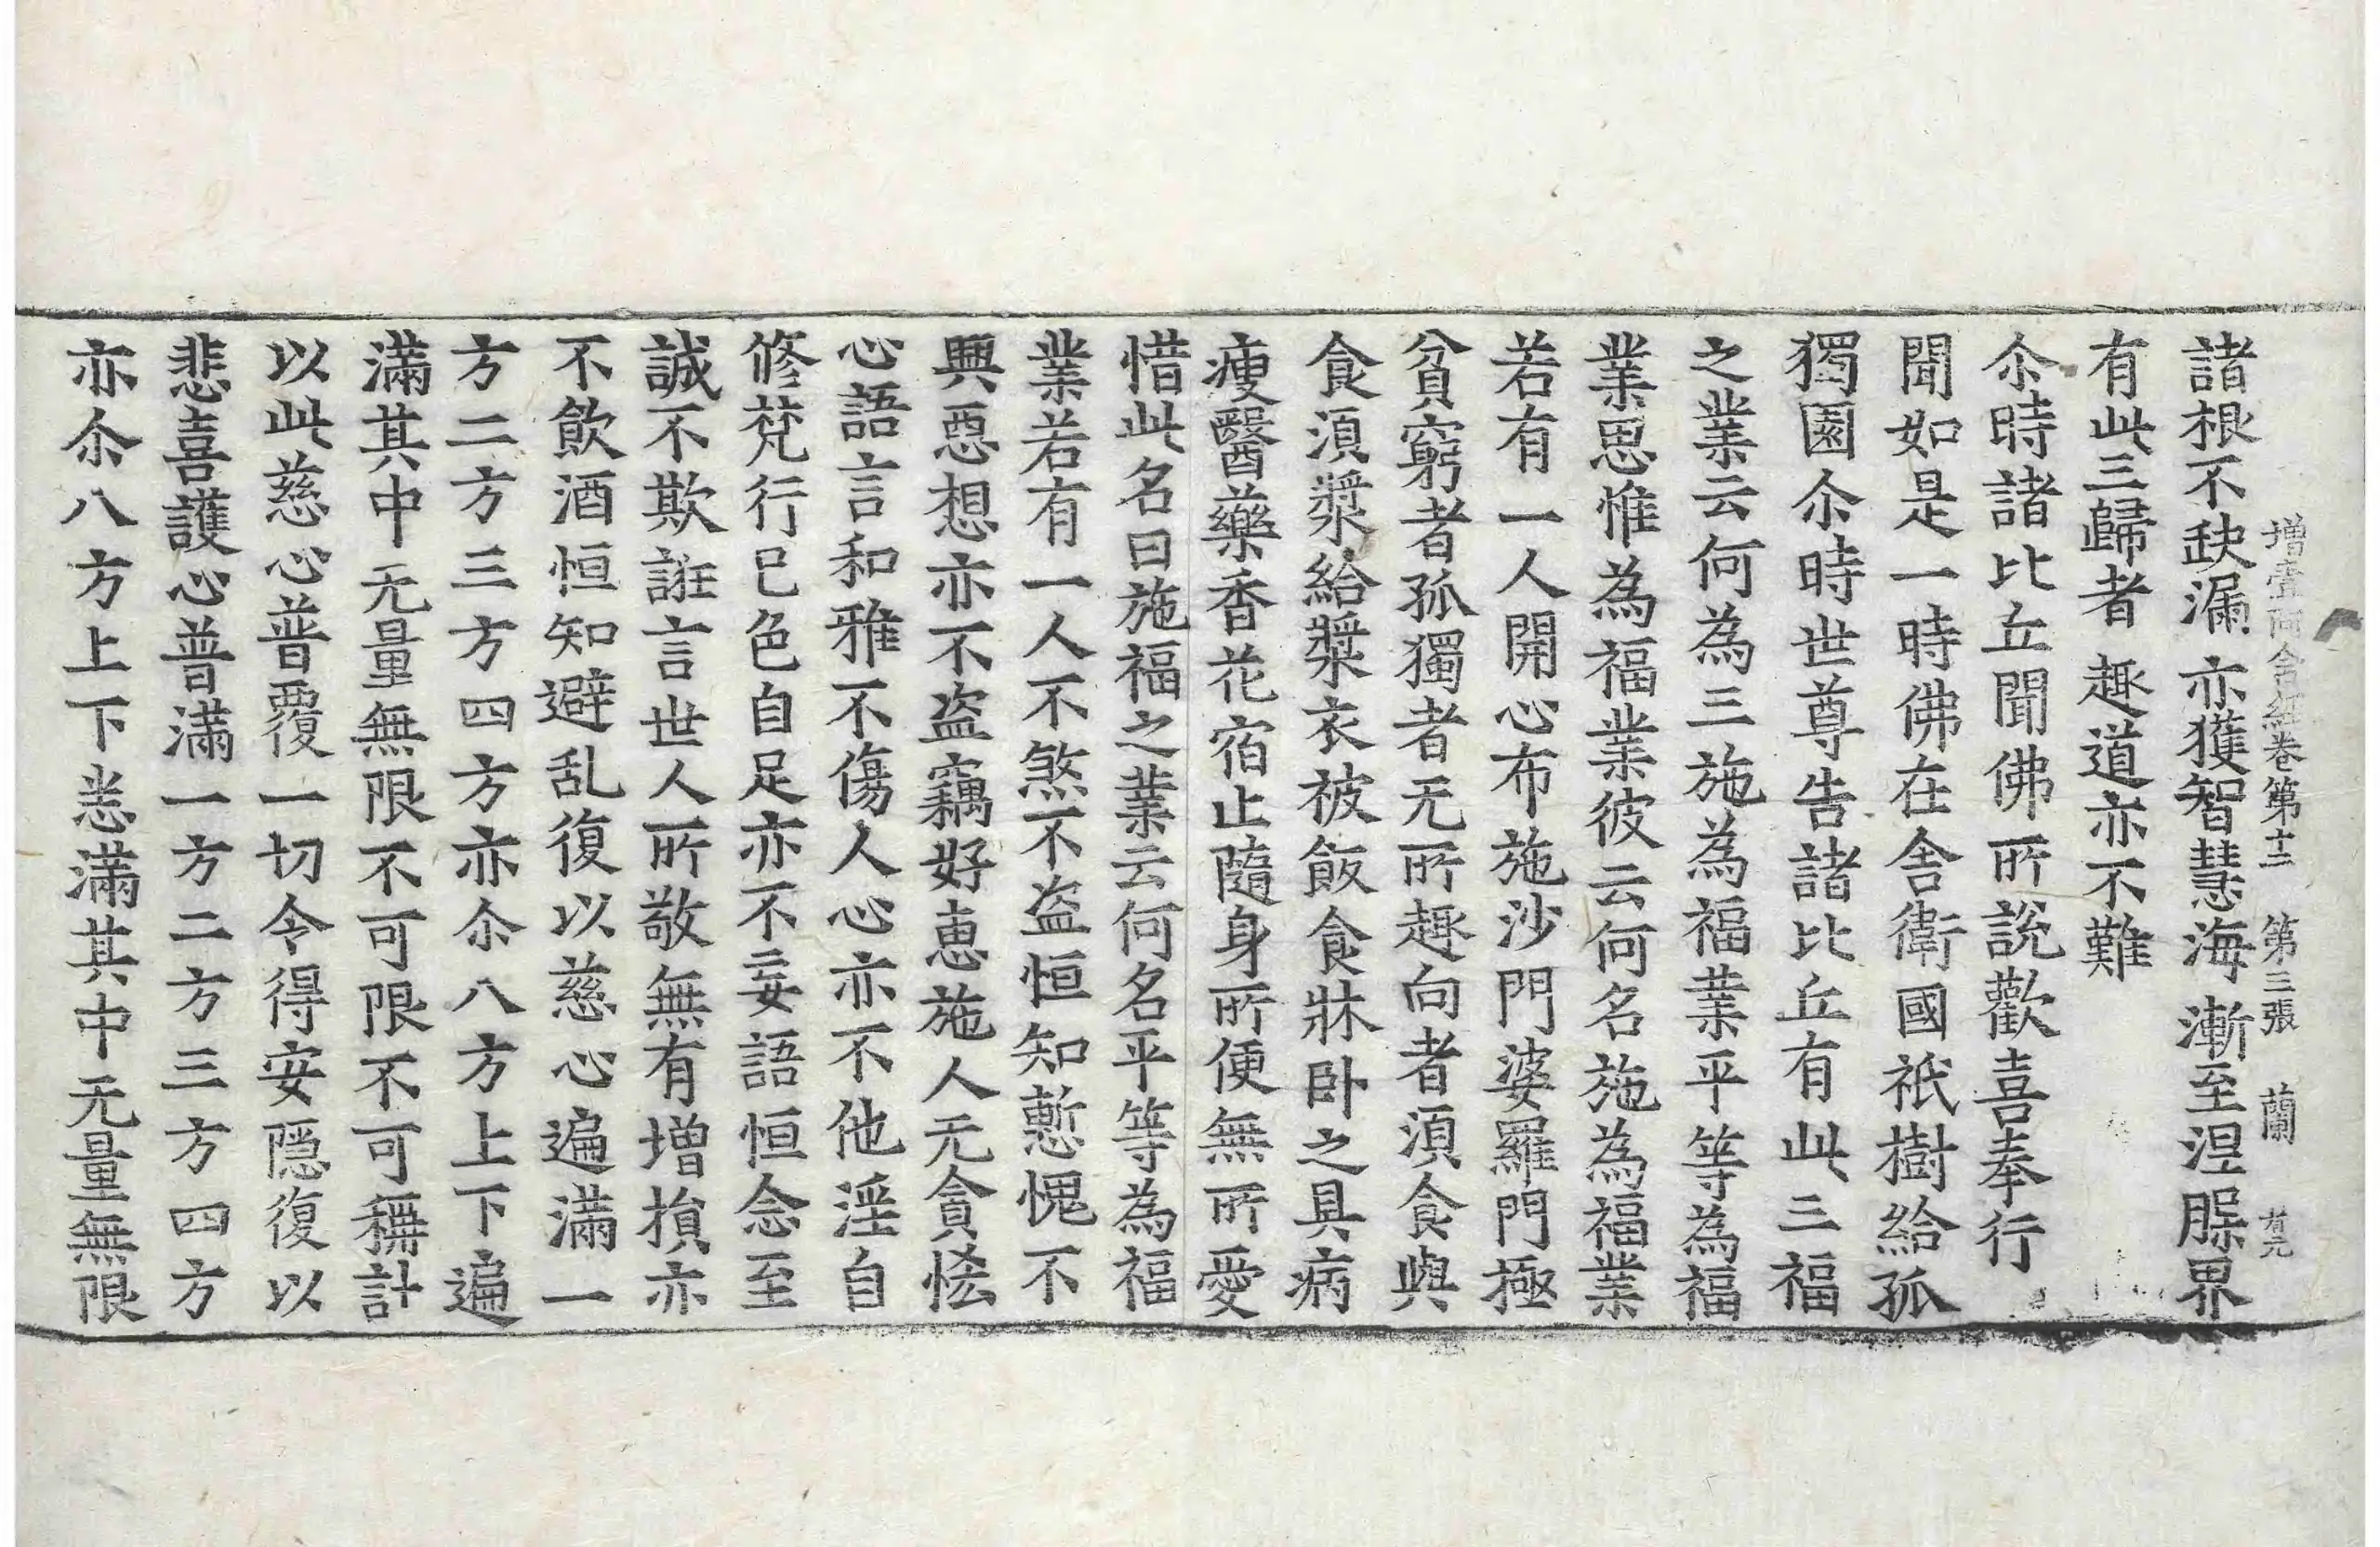 增壹阿含經卷第十二 第三張 蘭 有元
諸根不缺漏 亦獲智慧海 漸至涅槃界
有此三歸者 趣道亦不難
尒時諸比丘聞佛所說歡喜奉行
聞如是一時佛在舍衛國祇樹給孤
獨園尒時世尊告諸比丘有此三福
之業云何為三施為福業平等為福
業思惟為福業彼云何名施為福業
若有一人開心布施沙門婆羅門極
貧窮者孤獨者无所趣向者湏食與
食湏漿給漿衣被飯食牀卧之具病
瘦醫藥香花宿止隨身所便無所愛
惜此名曰施福之業云何名平等為福
業若有一人不煞不盗恒知慙愧不
興惡想亦不盗竊好惠施人无貪恡
心語言和雅不傷人心亦不他淫自
修梵行已色自足亦不妄語恒念至
誠不欺誑言世人所敬無有增損亦
不飲酒恒知避乱復以慈心遍滿一
方二方三方四方亦尒八方上下遍
滿其中无量無限不可限不可稱計
以此慈心普覆一切令得安隱復以
悲喜護心普滿一方二方三方四方
亦尒八方上下悉滿其中无量無限